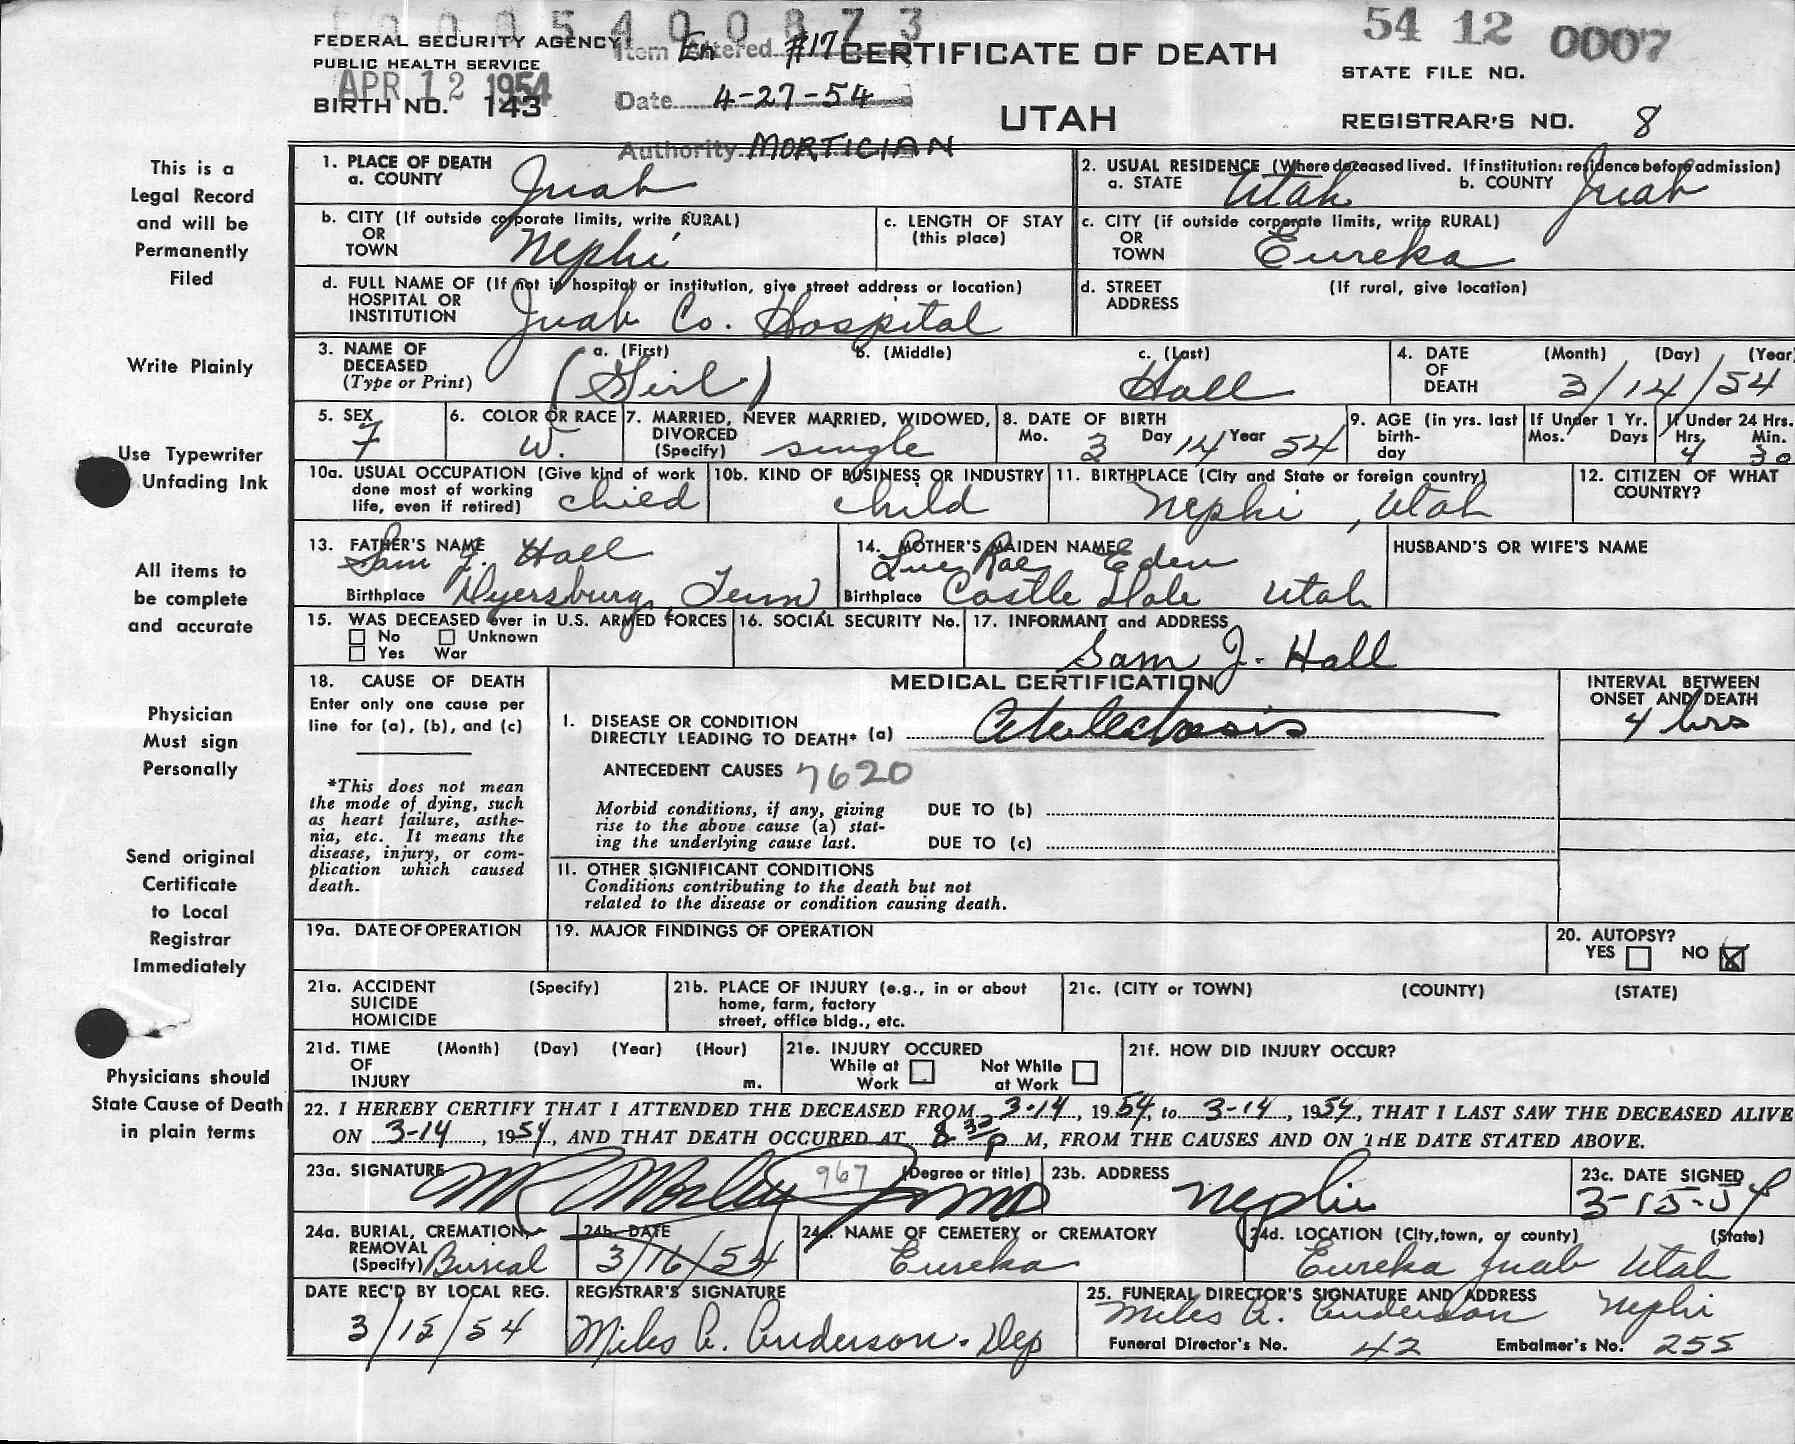 0005400873
54 12 0007
FEDERAL SECURITY AGENCY
PUBLIC HEALTH SERVICE
APR 12 1954
BIRTH NO. 143
Item Entered #17
Date 4-27-54
Authority MORTICIAN
CERTIFICATE OF DEATH
UTAH
STATE FILE NO.
REGISTRAR'S NO. 8
This is a
Legal Record
and will be
Permanently
Filed
Write Plainly
Use Typewriter
Unfading Ink
All items to
be complete
and accurate
Physician
Must sign
Personally
Send original
Certificate
to Local
Registrar
Immediately
Physicians should
State Cause of Death
in plain terms
1. PLACE OF DEATH
a. COUNTY Juab
2. USUAL RESIDENCE (Where deceased lived. If institution: residence before admission)
a. STATE Utah b. COUNTY Juab
b. CITY (If outside corporate limits, write RURAL)
OR
TOWN Nephi
c. LENGTH OF STAY
(this place)
c. CITY (if outside corporate limits, write RURAL)
OR
TOWN Eureka
d. FULL NAME OF (If not in hospital or institution, give street address or location)
HOSPITAL OR
INSTITUTION Juab Co. Hospital
d. STREET (If rural, give location)
ADDRESS
3. NAME OF DECEASED
(Type or Print)
a. (First) b. (Middle) c. (Last)
(Girl) Hall
4. DATE OF DEATH (Month) (Day) (Year)
3/14/54
5. SEX
F
6. COLOR OR RACE
W.
7. MARRIED, NEVER MARRIED, WIDOWED,
DIVORCED
(Specify) single
8. DATE OF BIRTH
Mo. 3 Day 14 Year 54
9. AGE (in yrs. last birth-day
If Under 1 Yr.
Mos. Days
If Under 24 Hrs.
Hrs. Min.
4 30
10a. USUAL OCCUPATION (Give kind of work
done most of working
life, even if retired) child
10b. KIND OF BUSINESS OR INDUSTRY
child
11. BIRTHPLACE (City and State or foreign country)
Nephi, Utah
12. CITIZEN OF WHAT
COUNTRY?
13. FATHER'S NAME
Sam J. Hall
Birthplace Dyersburg, Tenn
14. MOTHER'S MAIDEN NAME
Rae Eden
Birthplace Castle Dale Utah
HUSBAND'S OR WIFE'S NAME
15. WAS DECEASED ever in U.S. ARMED FORCES
No Unknown
Yes War
16. SOCIAL SECURITY No.
17. INFORMANT and ADDRESS
Sam J. Hall
18. CAUSE OF DEATH
Enter only one cause per
line for (a), (b), and (c)
*This does not mean
the mode of dying, such
as heart failure, asthe-
nia, etc. It means the
disease, injury, or com-
plication which caused
death.
MEDICAL CERTIFICATION
INTERVAL BETWEEN
ONSET AND DEATH
I. DISEASE OR CONDITION
DIRECTLY LEADING TO DEATH* (a) Atelectasis
4 hrs
ANTECEDENT CAUSES 7620
Morbid conditions, if any, giving
rise to the above cause (a) stat-
ing the underlying cause last.
DUE TO (b)
DUE TO (c)
II. OTHER SIGNIFICANT CONDITIONS
Conditions contributing to the death but not
related to the disease or condition causing death.
19a. DATE OF OPERATION
19. MAJOR FINDINGS OF OPERATION
20. AUTOPSY?
YES NO X
21a. ACCIDENT (Specify)
SUICIDE
HOMICIDE
21b. PLACE OF INJURY (e.g., in or about
home, farm, factory
street, office bldg., etc.
21c. (CITY or TOWN) (COUNTY) (STATE)
21d. TIME (Month) (Day) (Year) (Hour)
OF
INJURY m.
21e. INJURY OCCURED
While at Work
Not While at Work
21f. HOW DID INJURY OCCUR?
22. I HEREBY CERTIFY THAT I ATTENDED THE DECEASED FROM 3-14, 1954, to 3-14, 1954, THAT I LAST SAW THE DECEASED ALIVE
ON 3-14, 1954, AND THAT DEATH OCCURED AT 8 30 P M, FROM THE CAUSES AND ON THE DATE STATED ABOVE.
23a. SIGNATURE 967 (Degree or title)
MD
23b. ADDRESS
Nephi
23c. DATE SIGNED
3-15-54
24a. BURIAL, CREMATION,
REMOVAL
(Specify) Burial
24b. DATE
3/16/54
24c. NAME OF CEMETERY or CREMATORY
Eureka
24d. LOCATION (City, town, or county) (State)
Eureka Juab Utah
DATE REC'D BY LOCAL REG.
3/15/54
REGISTRAR'S SIGNATURE
Miles A. Anderson. Dep
25. FUNERAL DIRECTOR'S SIGNATURE AND ADDRESS
Miles A. Anderson Nephi
Funeral Director's No. 42 Embalmer's No. 255